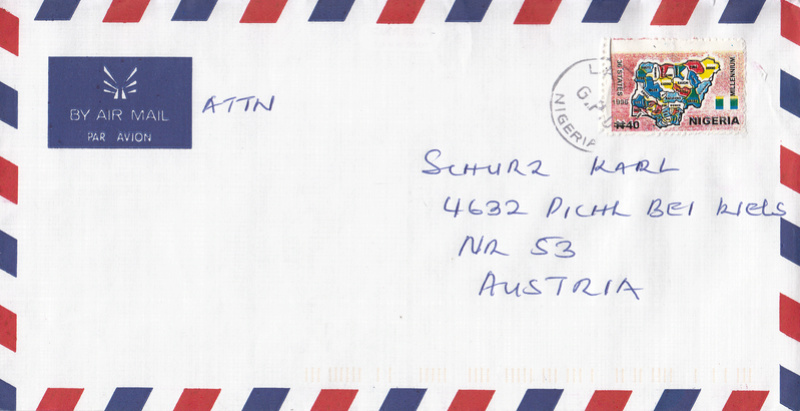 BY AIR MAIL
PAR AVION
ATTN
36 STATES
1996
MILLENNIUM
₦40
NIGERIA
LA
G.P.O
NIGERIA
SCHURZ KARL
4632 PICHL BEI WELS
NR 53
AUSTRIA